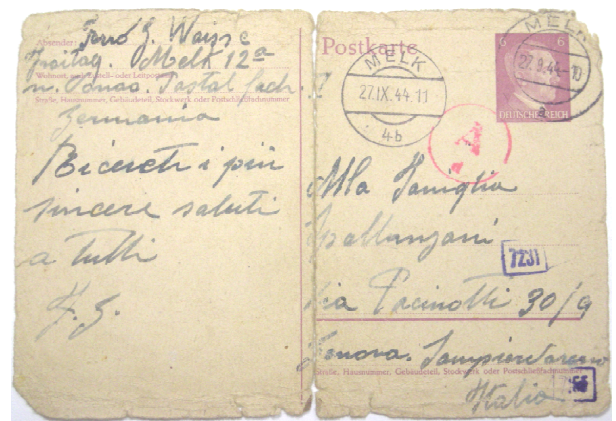 Absender:
Ferro G. Waisse
Freitag. Melk 12a
Wohnort, auch Zustell- oder Leitpostamt
n. Donau. Postal fach. I
Straße, Hausnummer, Gebäudeteil, Stockwerk oder Postschließfachnummer
Germania
Ricevete i più
sincere saluti
a tutti
F. G.
Postkarte
MELK
27.IX.44.11
4b
MELK
27.9.44-10
a
6 6
DEUTSCHES REICH
Alla Famiglia
Spallanzani
7231
Via Pacinotti 30/9
Genova. Sampierdareno
Straße, Hausnummer, Gebäudeteil, Stockwerk oder Postschließfachnummer
Italia